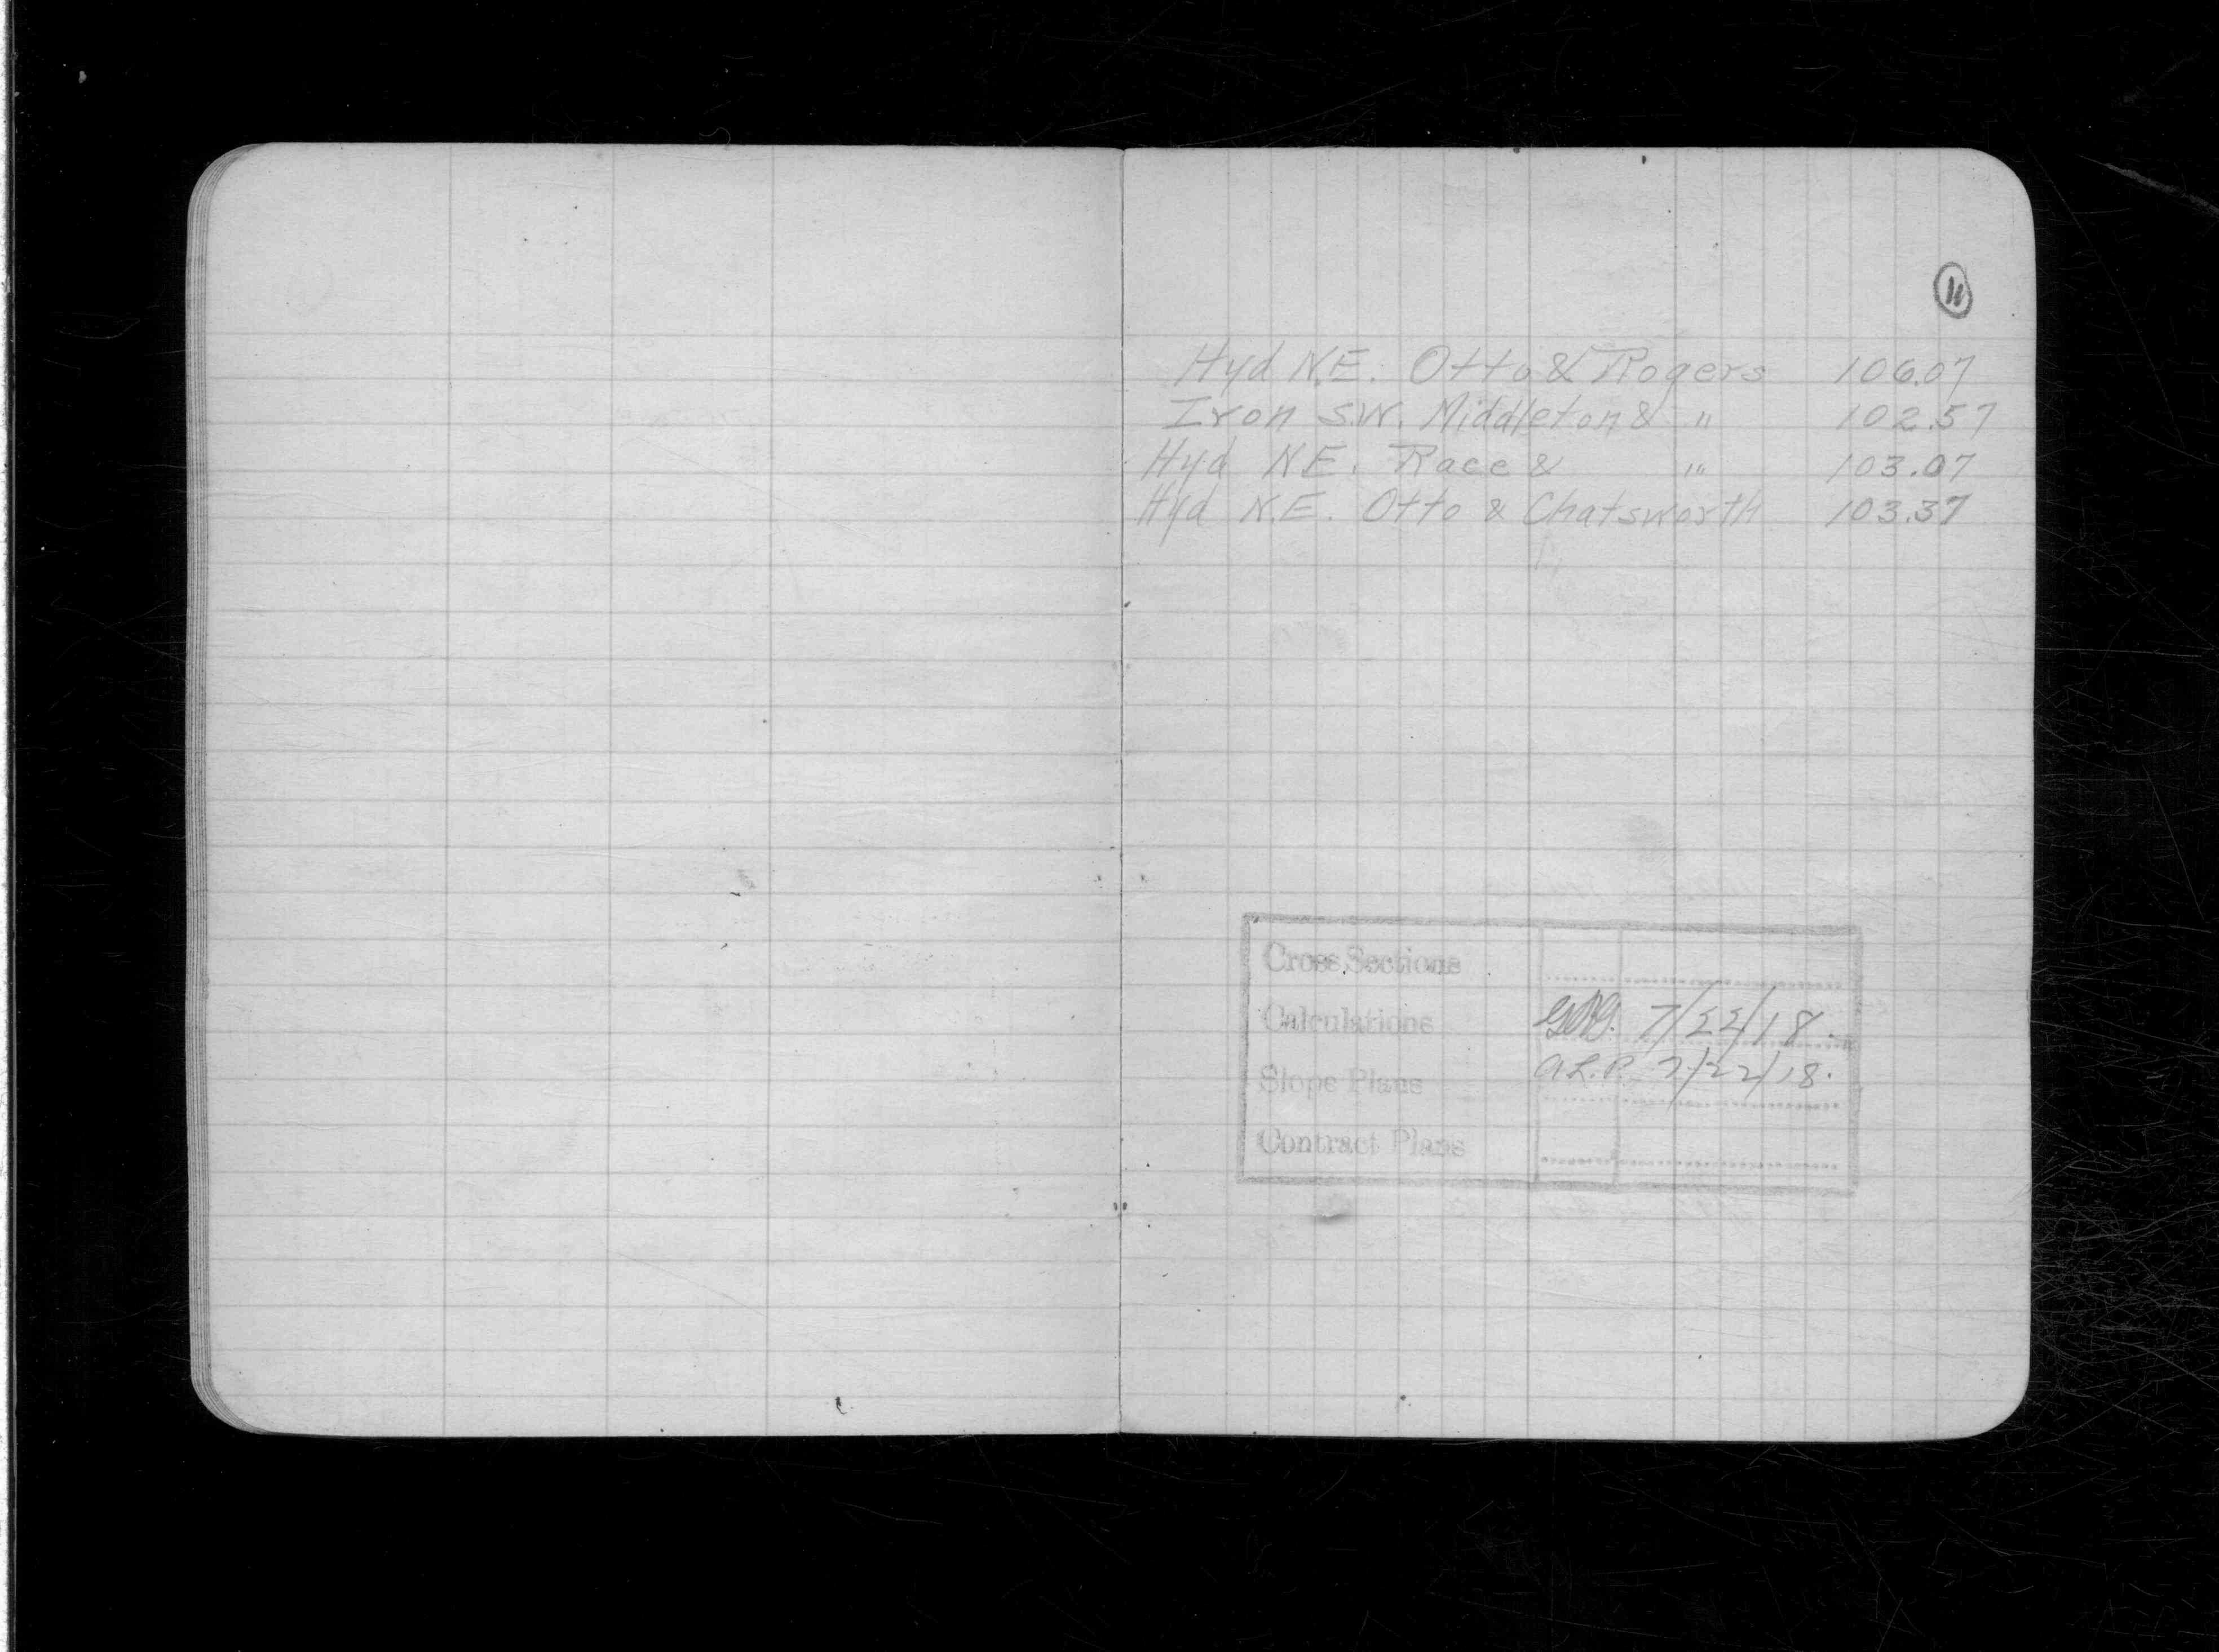 11
Hyd N.E. Otto & Rogers 106.07
Iron S.W. Middleton & " 102.57
Hyd N.E. Race & " 103.07
Hyd N.E. Otto & Chatsworth 103.37
Cross Sections
Calculations 7/22/18.
Slope Plans A.L.P. 7/22/18.
Contract Plans